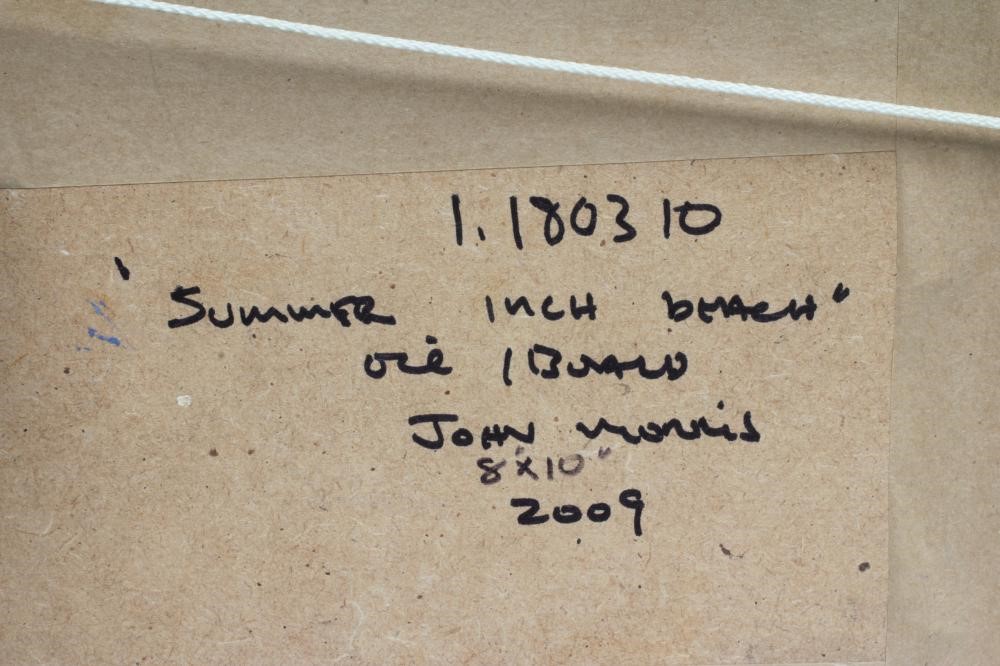 1.180310
'Summer Inch Beach"
Oil / Board
John Morris
8"x10"
2009